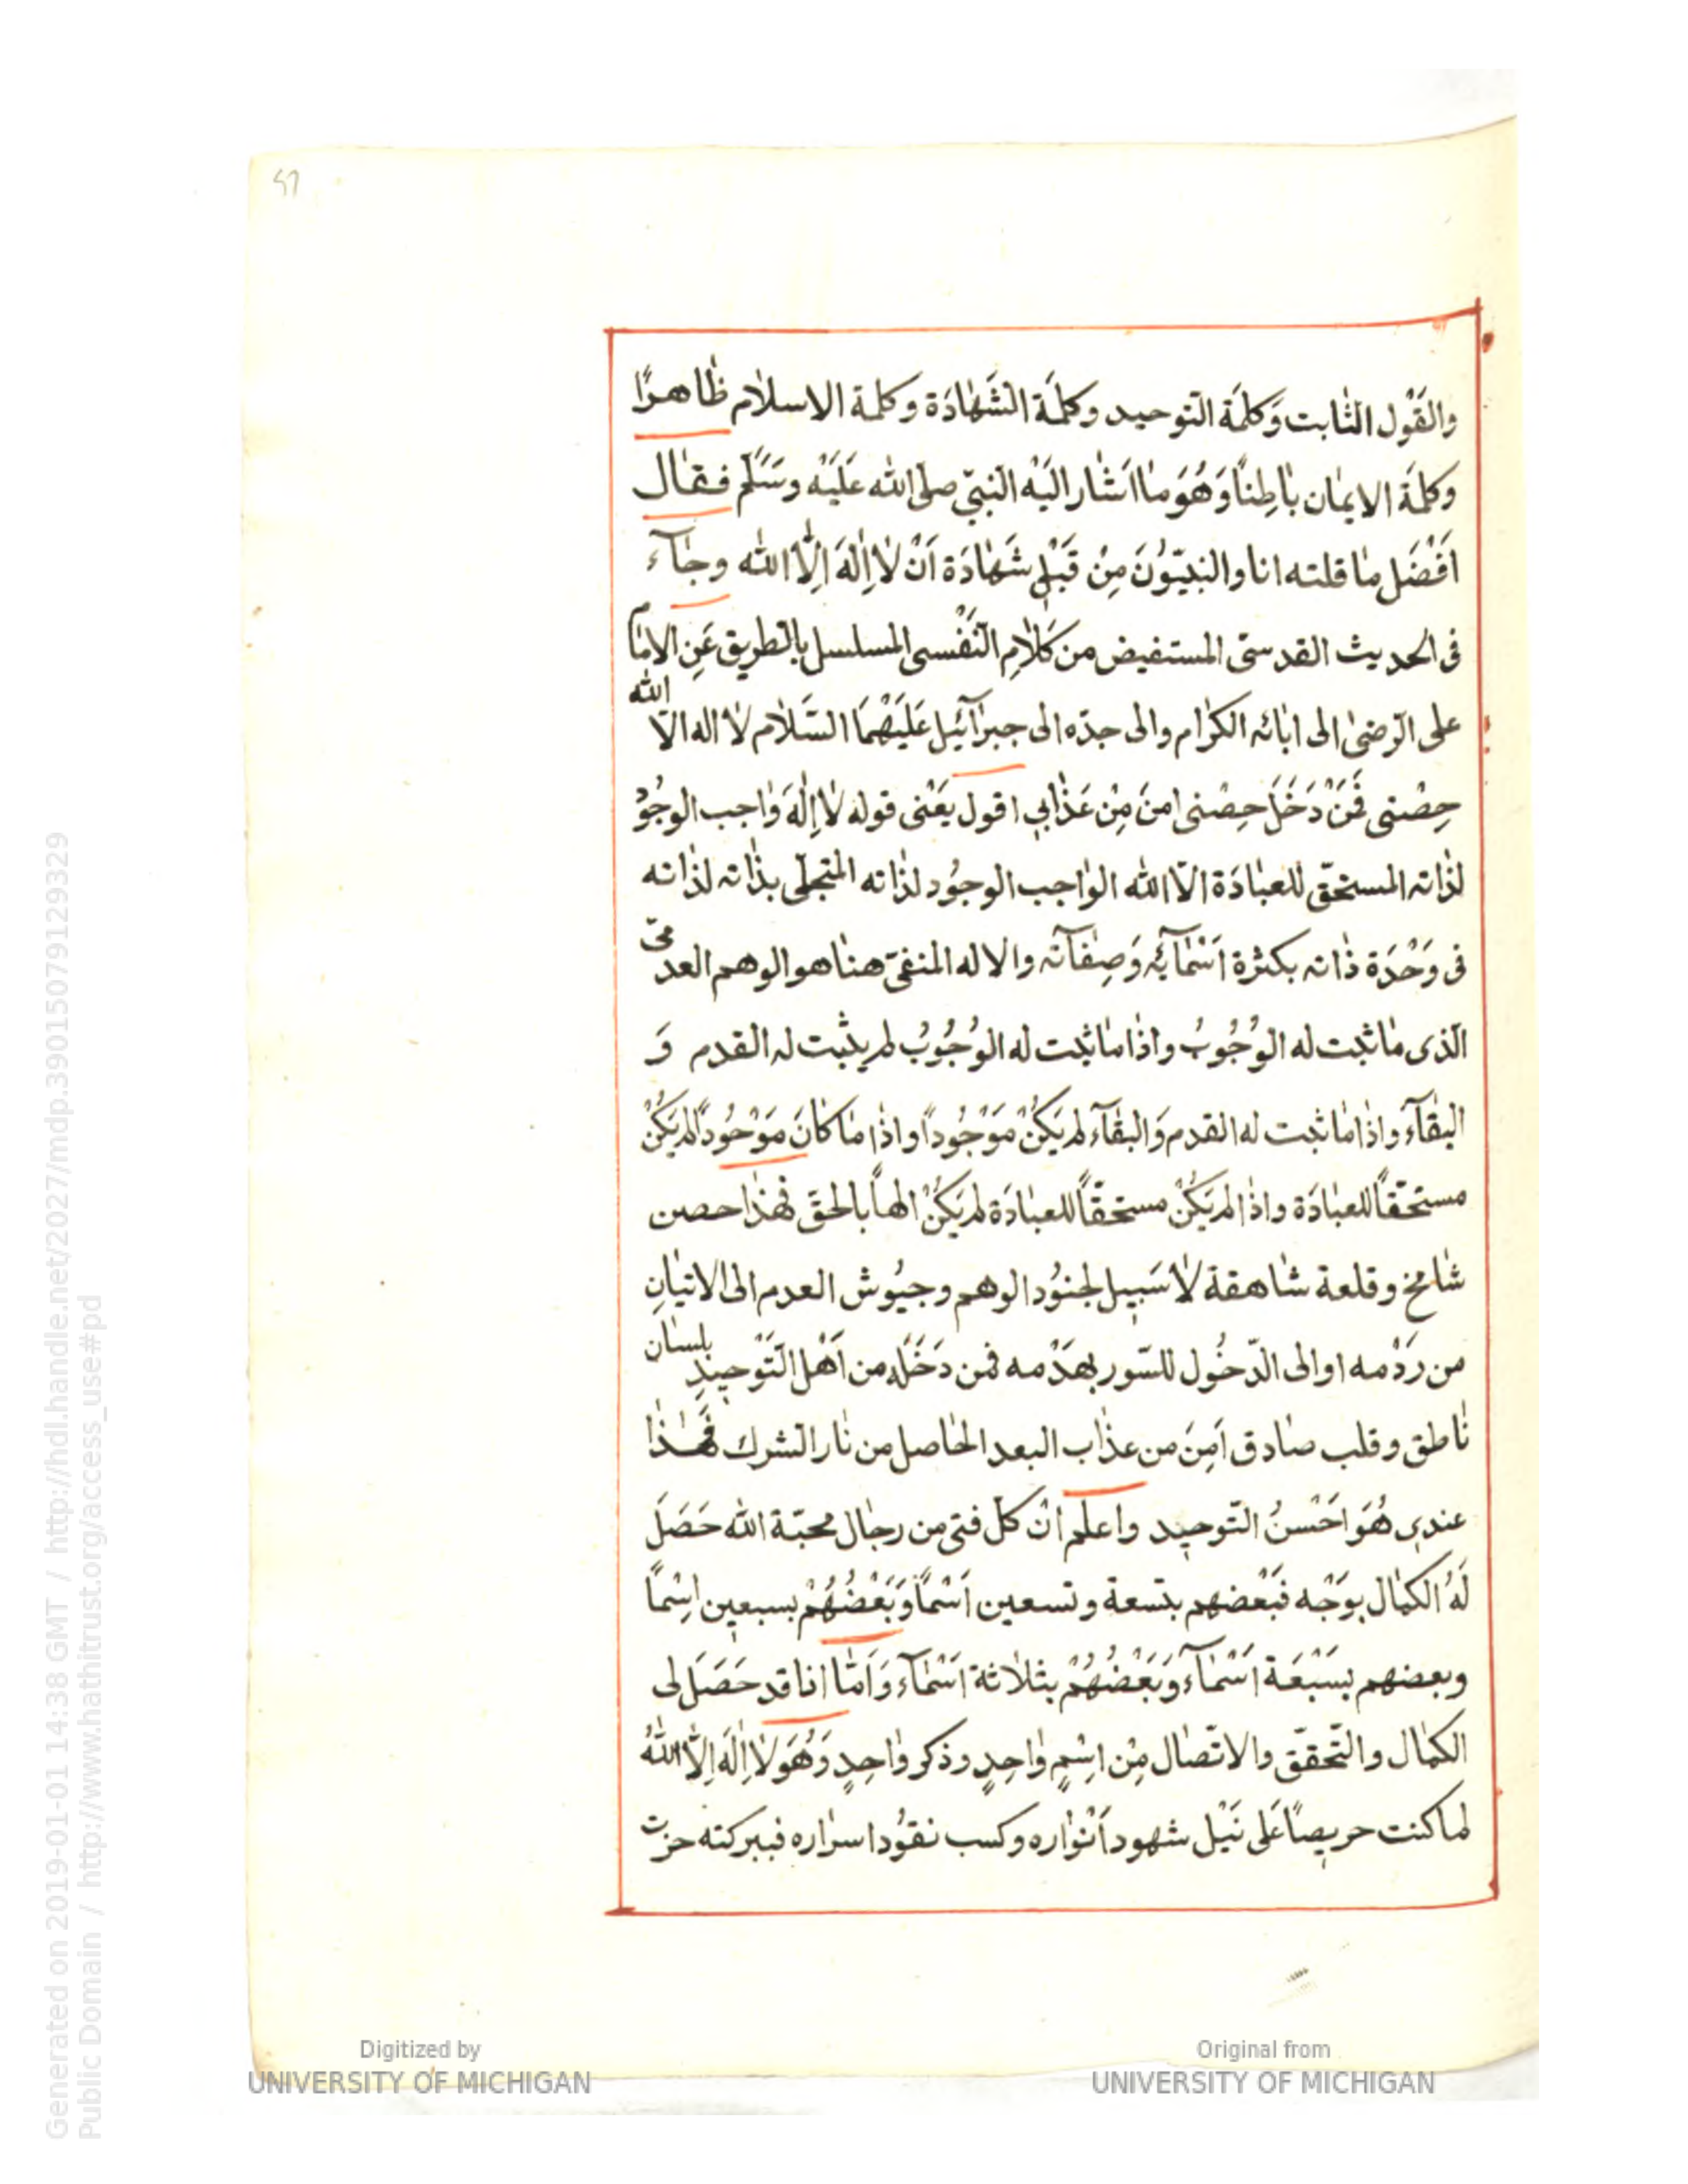 57
والقَوْل الثابت وَكلمَة التوحيد وكلمَة الشَّهَادَة وكلمة الاسلام ظاهرًا
وكلمَة الايمان باطِناً وَهُوَ ما اَشار اليَه النبىّ صلى الله عَلَيْه وسَلَّم فقال
اَفضَل ما قلته انا والنبيّوُنَ مِنْ قَبْلِ شَهَادَة اَنْ لا اِلٰهَ اِلّا الله وجاء
فى الحديث القدسىّ المستفيض من كَلامِ النَّفْسى المسلسل بالطريق عَنِ الامام
على الرّضىٰ الى ابائه الكرام والى جدّه الى جبرآئيل عَلَيْهِمَا السَّلام لا اله الّا الله
حِصْنى فَمَنْ دَخَلَ حِصْنى امنَ مِنْ عَذابي اقول يَعْنى قوله لا اِلٰهَ واجب الوجُوُد
لذاته المستحقّ للعبادَة الّا الله الواجب الوجوُد لذاته المتجلّى بذاته لذاته
فى وَحْدَة ذاته بكثرة اَسْمآئِه وَصِفاته والا له المنفىّ هنا هو الوهم العدمىّ
الّذى ما ثبت له الوُجُوبُ واذا ما ثبت له الوُجُوبُ لم يثبت له القدم وَ
البقآءُ واذا ما ثبت له القدم وَالبقآء لم يَكُنْ مَوْجُوداً واذا ما كانَ مَوْجُوداً لم يَكُنْ
مستحقّاً للعبادَة واذا لم يَكُنْ مستحقّاً للعبادَة لم يَكُنْ الهاً بالحقّ فهذا حصن
شامخ وقلعة شاهقة لا سَبيل لجنوُد الوهم وجيُوش العدم الى الاتيانِ
من رَدْمه او الى الدّخُول للسّور بهَدْمه فمن دَخَلَه من اَهْل التَّوْحيدِ بلسان
ناطق وقلب صادق اَمِنَ من عذاب البعد الحاصل من نار الشرك فَهٰذا
عندى هُوَ احَسْنُ التّوحيد واعلم انْ كلّ فتى من رجال محبّة الله حَصَلَ
لَهُ الكمال بوَجْه فبَعْضهم بتسعة وتسعين اَسْماً وَبَعْضُهُمْ بسبعين اِسْماً
وبعضهم بسَبْعَة اَسْمآء وَبَعْضُهُمْ بثلاثة اَسْمآء وَاَمّا انا قد حَصَلَ لى
الكمال والتّحقّق والاتّصال مِنْ اِسْمٍ واحِدٍ وذكر واحِدٍ وَهُوَ لا اِلٰهَ اِلّا اللهُ
لما كنت حريصاً عَلى نَيْل شهود اَنْواره وكسب نقوُد اسراره فببركته حزت
Generated on 2019-01-01 14:38 GMT / http://hdl.handle.net/2027/mdp.39015079129329
Public Domain / http://www.hathitrust.org/access_use#pd
Digitized by
UNIVERSITY OF MICHIGAN
Original from
UNIVERSITY OF MICHIGAN